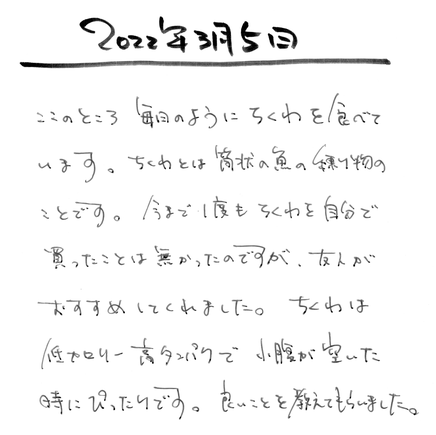 2022年3月5日
ここのところ 毎日のように ちくわを食べて
います。ちくわとは筒状の魚の練り物の
ことです。今まで1度もちくわを自分で
買ったことは無かったのですが、友人が
おすすめしてくれました。ちくわは
低カロリー高タンパクで 小腹が空いた
時にぴったりです。良いことを教えてもらいました。